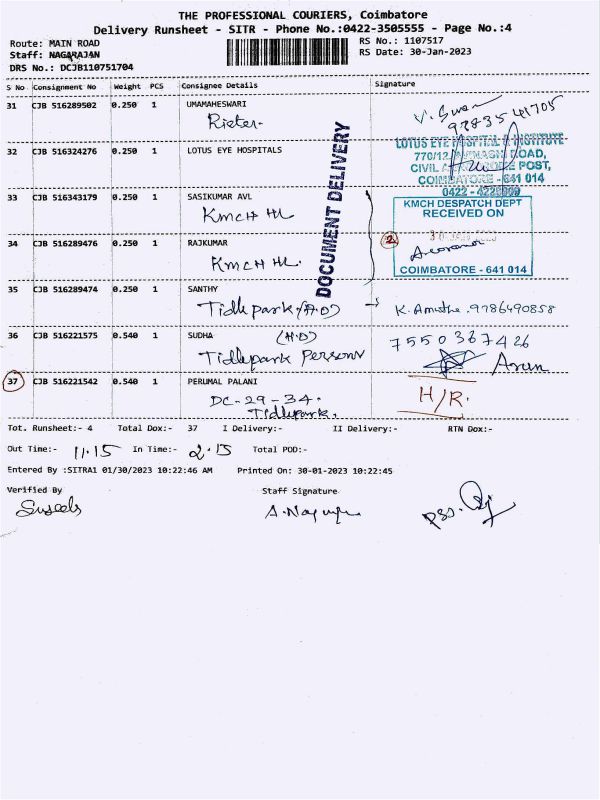 THE PROFESSIONAL COURIERS, Coimbatore
Delivery Runsheet - SITR - Phone No.:0422-3505555 - Page No.:4
Route: MAIN ROAD
RS No.: 1107517
Staff: NAGARAJAN
RS Date: 30-Jan-2023
DRS No.: DCJB110751704
S No Consignment No Weight PCS Consignee Details Signature
31 CJB 516289502 0.250 1 UMAMAHESWARI
Rieter-
97835 41705
32 CJB 516324276 0.250 1 LOTUS EYE HOSPITALS
LOTUS EYE HOSPITAL & INSTITUTE
770/12, AVINASHI ROAD,
CIVIL AERODROME POST,
COIMBATORE - 641 014
33 CJB 516343179 0.250 1 SASIKUMAR AVL
KMCH HL
DOCUMENT DELIVERY
KMCH DESPATCH DEPT
RECEIVED ON
2
COIMBATORE - 641 014
34 CJB 516289476 0.250 1 RAJKUMAR
KMCH HL.
35 CJB 516289474 0.250 1 SANTHY
Tidle park (H.D) → K. Amutha .9786490858
36 CJB 516221575 0.540 1 SUDHA (H.D)
Tidlepark Personr
7550367426
Arun
37 CJB 516221542 0.540 1 PERUMAL PALANI
DC-29-34.
Tidlepark.
H/R.
Tot. Runsheet:- 4 Total Dox:- 37 I Delivery:- II Delivery:- RTN Dox:-
Out Time:- 11.15 In Time:- 2.15 Total POD:-
Entered By :SITRA1 01/30/2023 10:22:46 AM Printed On: 30-01-2023 10:22:45
Verified By Staff Signature
Suseela